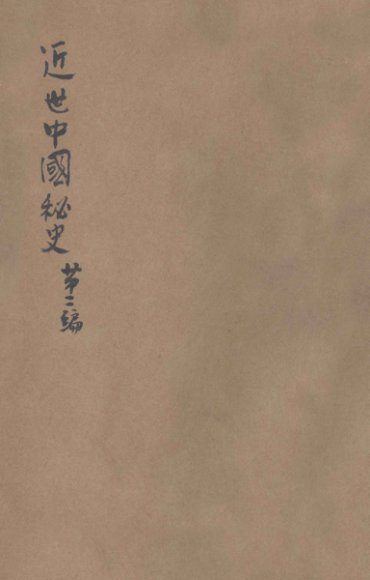 近世中國秘史
第二編